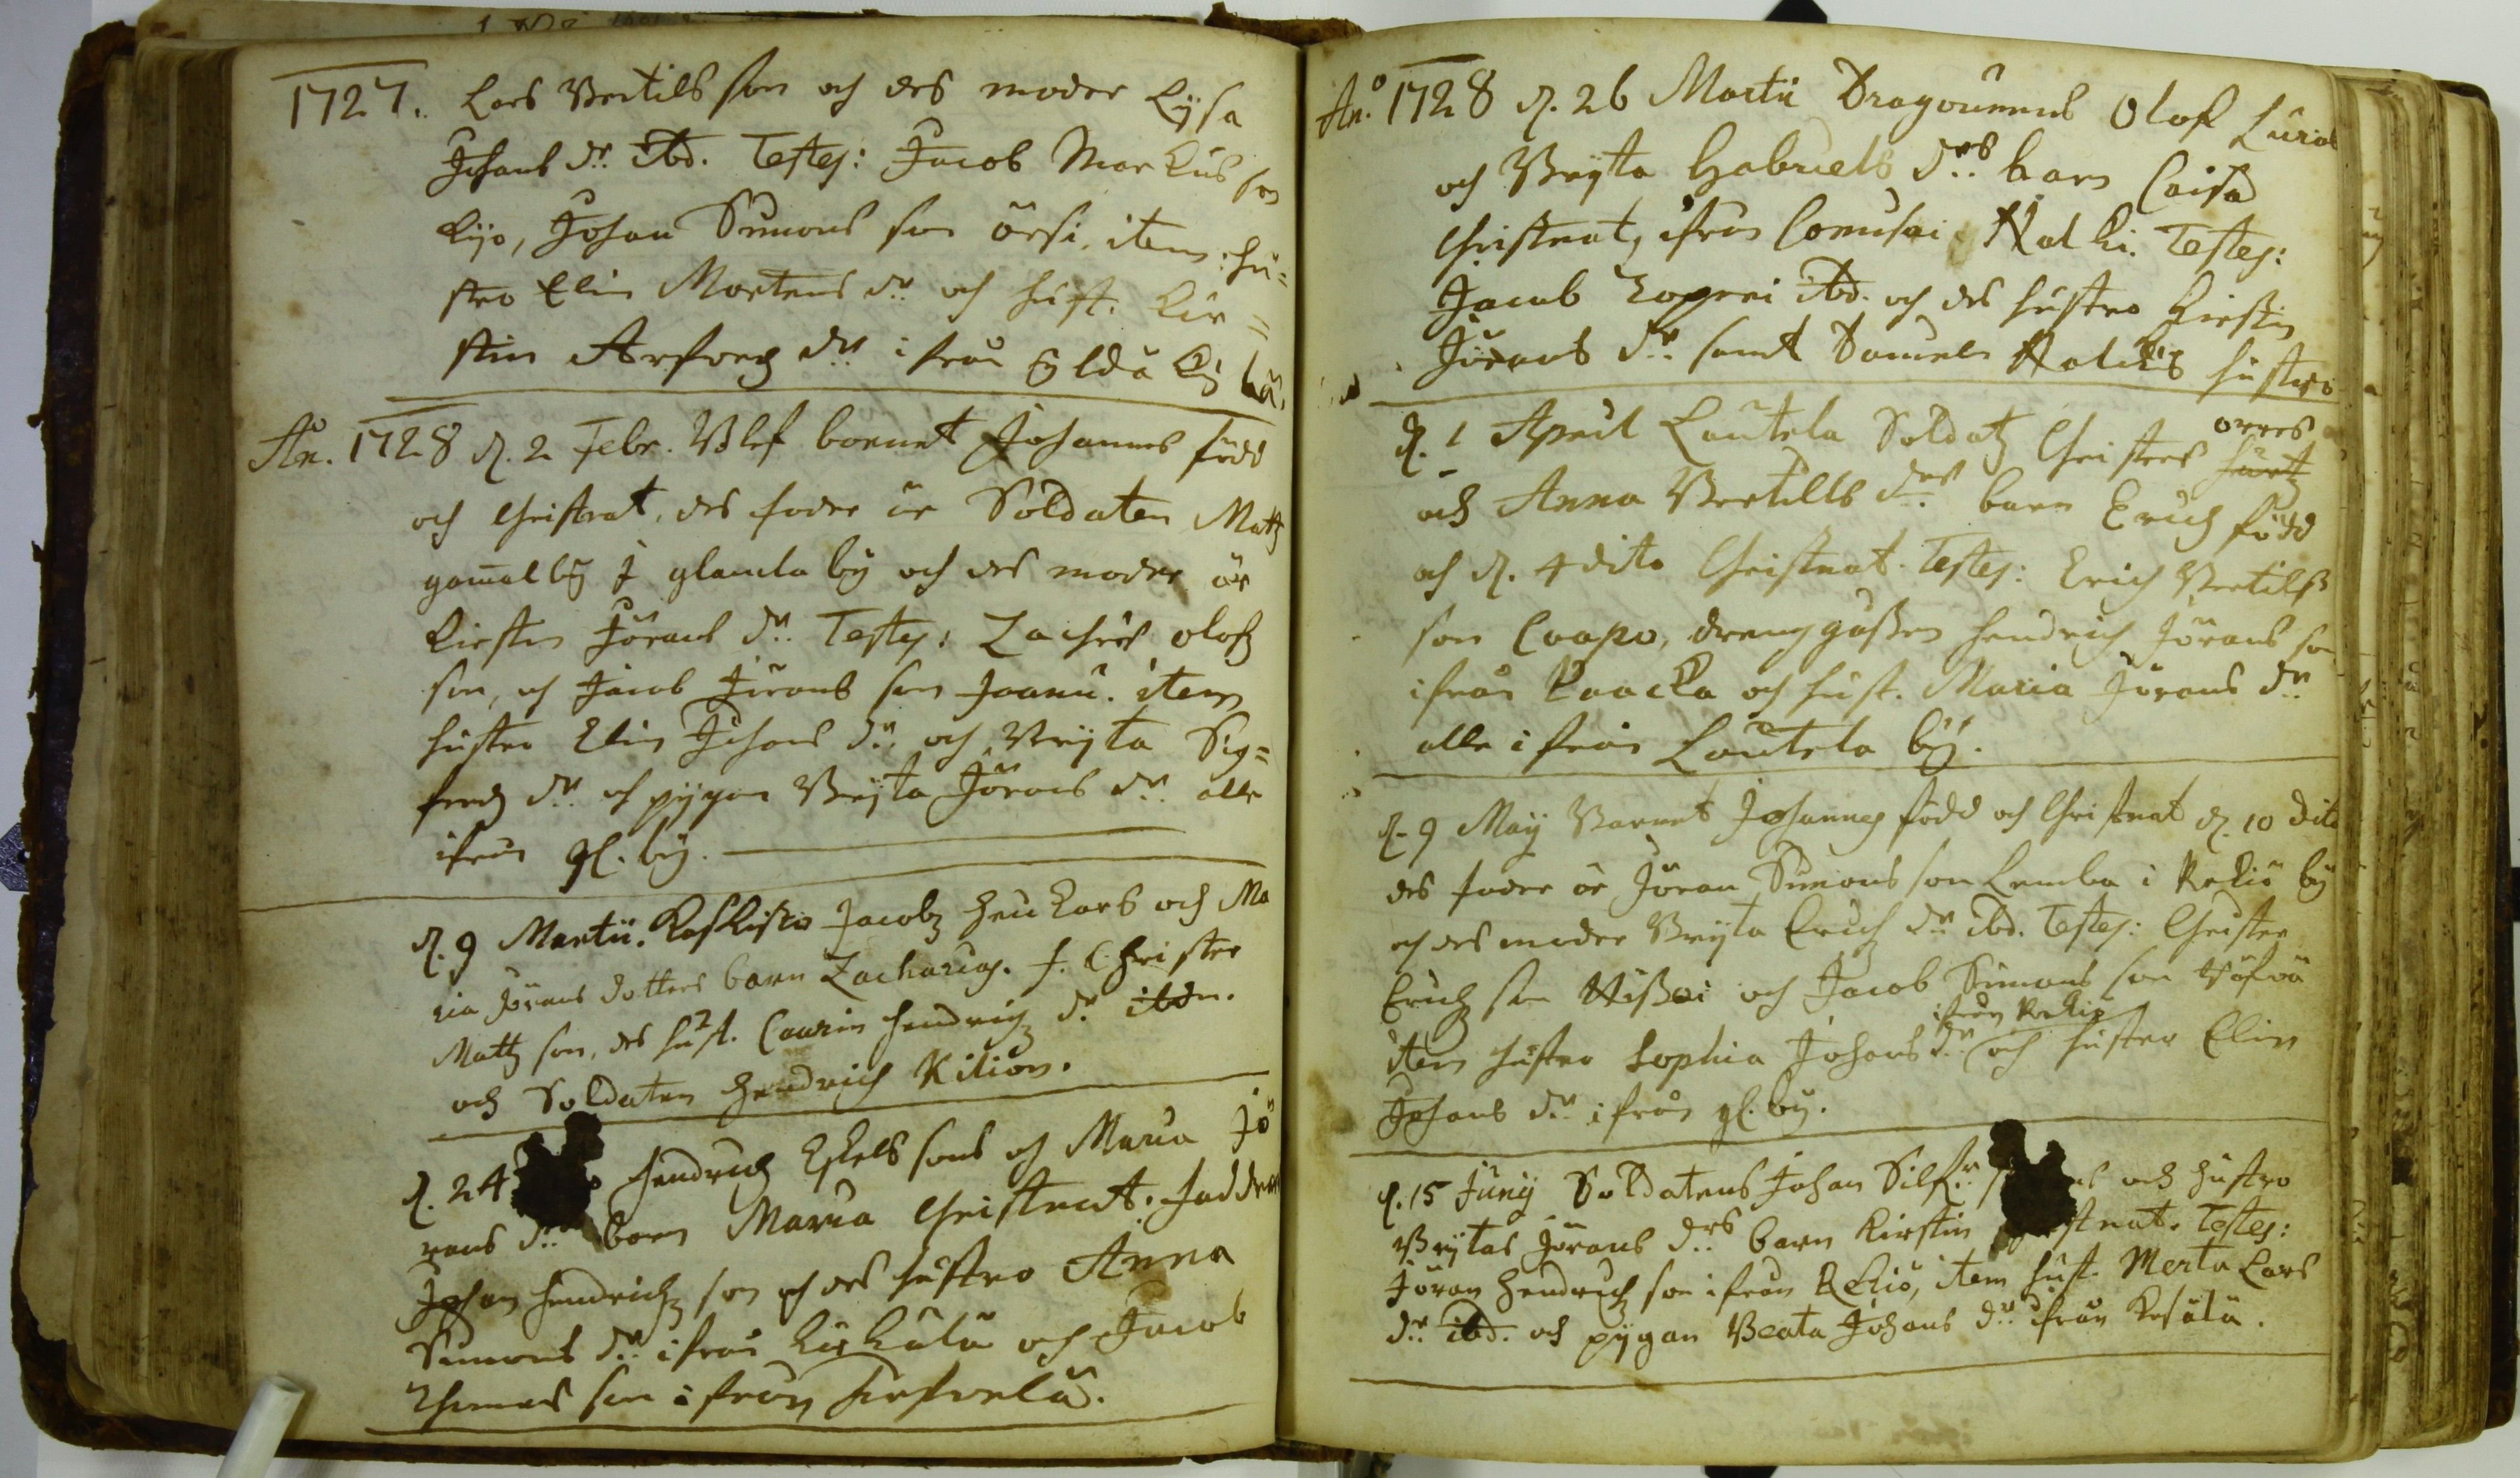 1727. Lars Bertils son och des moder Lysa
Johans dr. ibd. Testes: Jacob Markus son
Kijo, Johan Simons son örsi, item hu-
stro Elin Mortens dr och hust. Kir-
stin Arfvedz dr ifrån Eldä by
An. 1728 d. 2 Febr. Blef barnet Johannes född
och Christnat, des fader är Soldaten Matz
gamalby i glamla by och des moder är
Kirstin Jörans dr. Testes: Zachris olofz
son, och Jacob Jörans son Joanu. item
hustro Elin Johans dr. och Bryta Sig-
fredz dr. och pygan Bryta Jörans dr. alle
ifrån gl. by.
d. 9 Martii. Jacobz Hen Lars och Ma
ria Jörans dotters barn Zacharias. f. Christer
Mattz son, des hust. Caarin Hendrichz dr ibdm.
och Soldaten Hendrich Kilion.
d. 24 Hendrich Eskels sons och Maria Jö
rans dr. barn Maria Christnat. Faddrar
Johan Hendrichz son och des hustro Anna
Simons dr. ifrån och Jacob
Thomas son ifrån
An:o 1728 d. 26 Martii Dragounens Olof
och Bryta Gabriels drs barn Caisa
Christnat, ifrån Comusai Nalki. Testes:
Jacob ibd. och des hustro Kirstin
Jörans dr. samt Samuels hustro
orres
d. 1 April Lautela Soldatz Christers
och Anna Bertills drs barn Erich född
och d. 4 dito Christnat. Testes: Erich Bertils
son Coapo, dreng gossen Hendrich Jörans son
ifrån Kaacka och hust. Maria Jörans dr.
alle ifrån Lautela by.
d. 9 Maij Barnet Johannes född och Christnat d. 10 dito
des fader är Jöran Simons son Lemba i Rekiö by
och des moder Bryta Erichz dr. ibd. Testes: Christer
Erichz son Nissai och Jacob Simons son
ifrån Rekiö
item hustro Sophia Johans dr. och hustro Elin
Johans dr. ifrån gl. by.
d. 15 Junij Soldatens Johan och hustro
Brytas Jörans drs barn Kirstin Testes:
Jöran Hendrichz son ifrån Rekiö, item hust. Merta Lars
dr. ibd. och pygan Beata Johans dr. ifrån Kesälä.